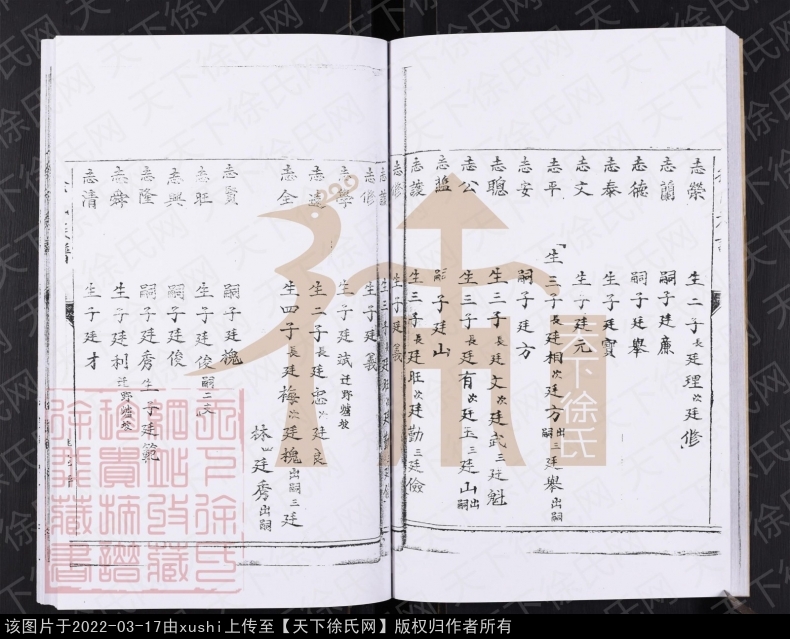 志榮 生二子長廷理次廷修
志蘭 嗣子廷廉
志德 嗣子廷舉
志泰 生子廷寶
志文 生子廷元
志平 生三子長廷相次廷方出嗣三廷舉出嗣
志安 嗣子廷方
志聰 生三子長廷文次廷武三廷魁
志公 生三子長廷有次廷玉三廷山出嗣
志監 嗣子廷山
志謨 生三子長廷旺次廷勤三廷儉
志修 生子廷義
志修 生子廷義
志學 生子廷斌遷野爐坡
志遠 生二子長廷忠次廷良
志全 生四子長廷梅次廷槐出嗣三廷林四廷秀出嗣
志賢 嗣子廷槐
志旺 生子廷俊嗣二支
志興 嗣子廷俊
志隆 嗣子廷秀生子廷範
志舜 生子廷利遷野爐坡
志清 生子廷才
天下徐氏
天下徐氏网
该图片于2022-03-17由xushi上传至【天下徐氏网】版权归作者所有